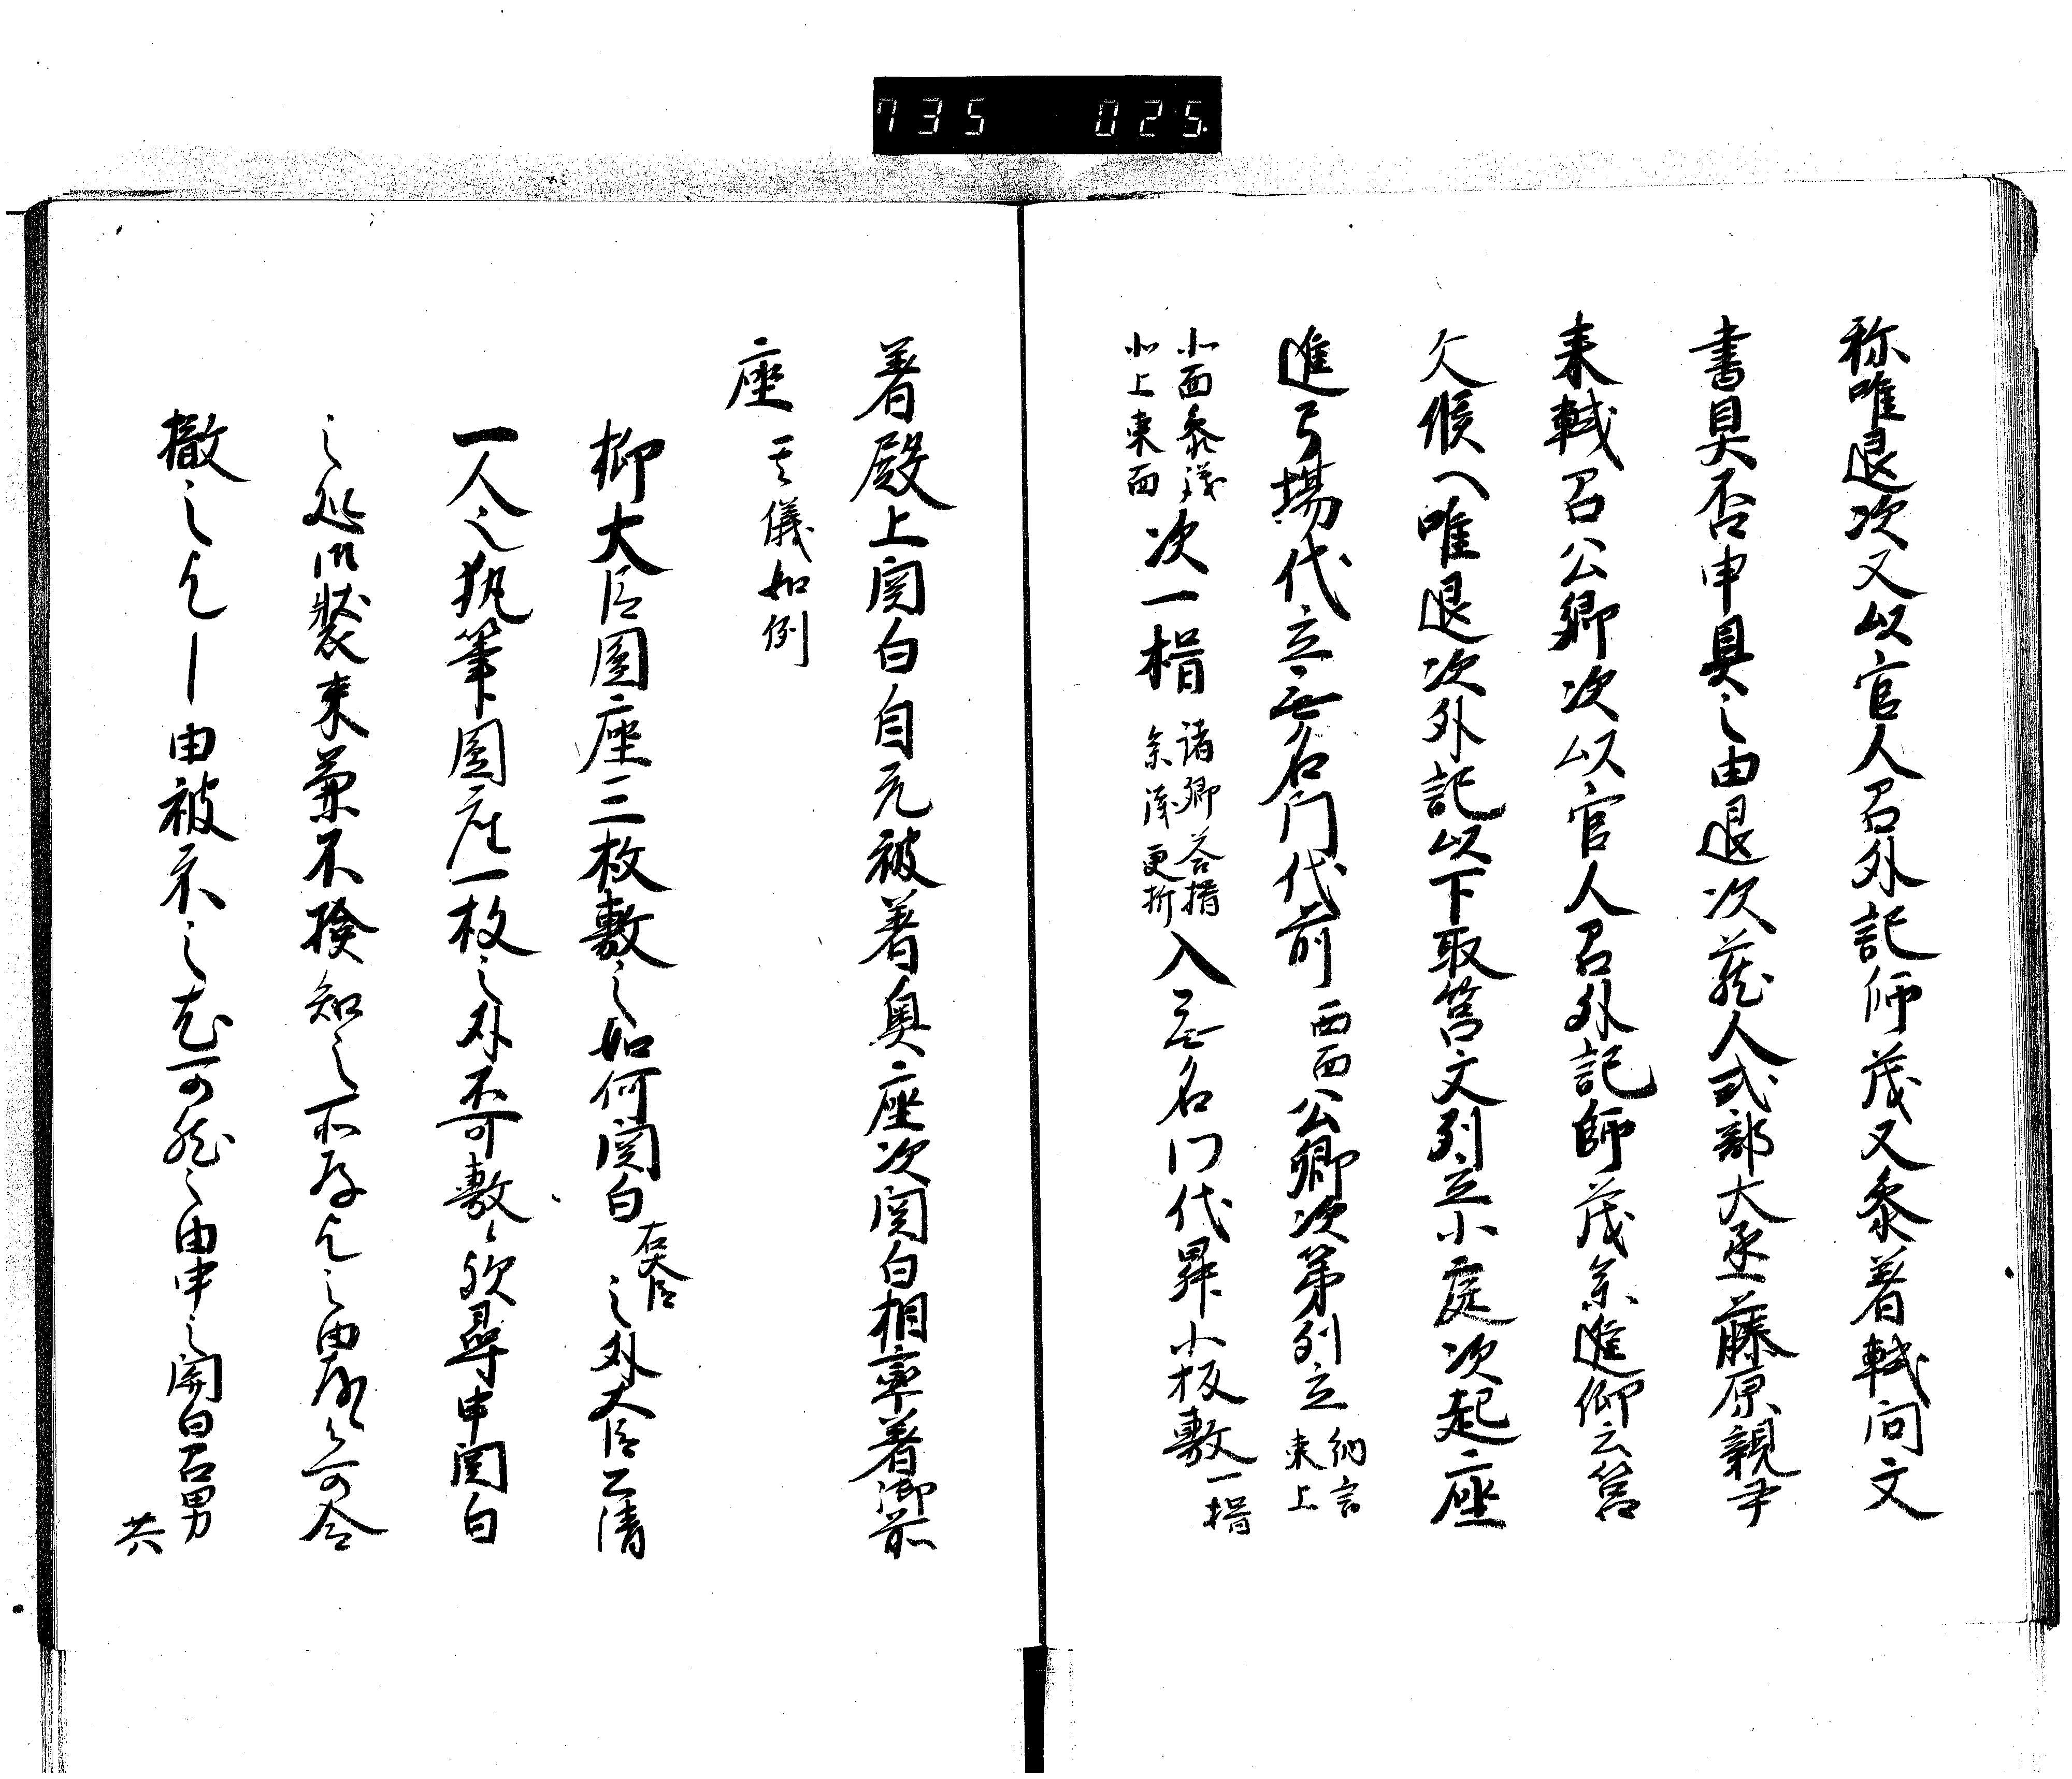 735 025
称唯退次又以官人召外記師茂又参着軾問文
書具否申具之由退次蔵人式部大丞藤原親尹
来軾召公卿次以官人召外記師茂参進仰云筥
文候へ唯退次外記以下取筥文列立小庭次起座
進弓場代立無名門代前 西面 公卿次第列立 納言 東上
北面参議 北上東面 次一揖 諸卿答揖 余深更折 入無名門代昇小板敷 一揖
着殿上関白自元被着奥座次関白相率着御前
座 其儀如例
抑大臣円座三枚敷之如何関白 右大臣 之外大臣已清
一人也執筆円座一枚之外不可敷々欤尋申関白
之処御装束兼不検知之不存知之由 可令
撤之 由被示之尤可然之由申之関白召男
共